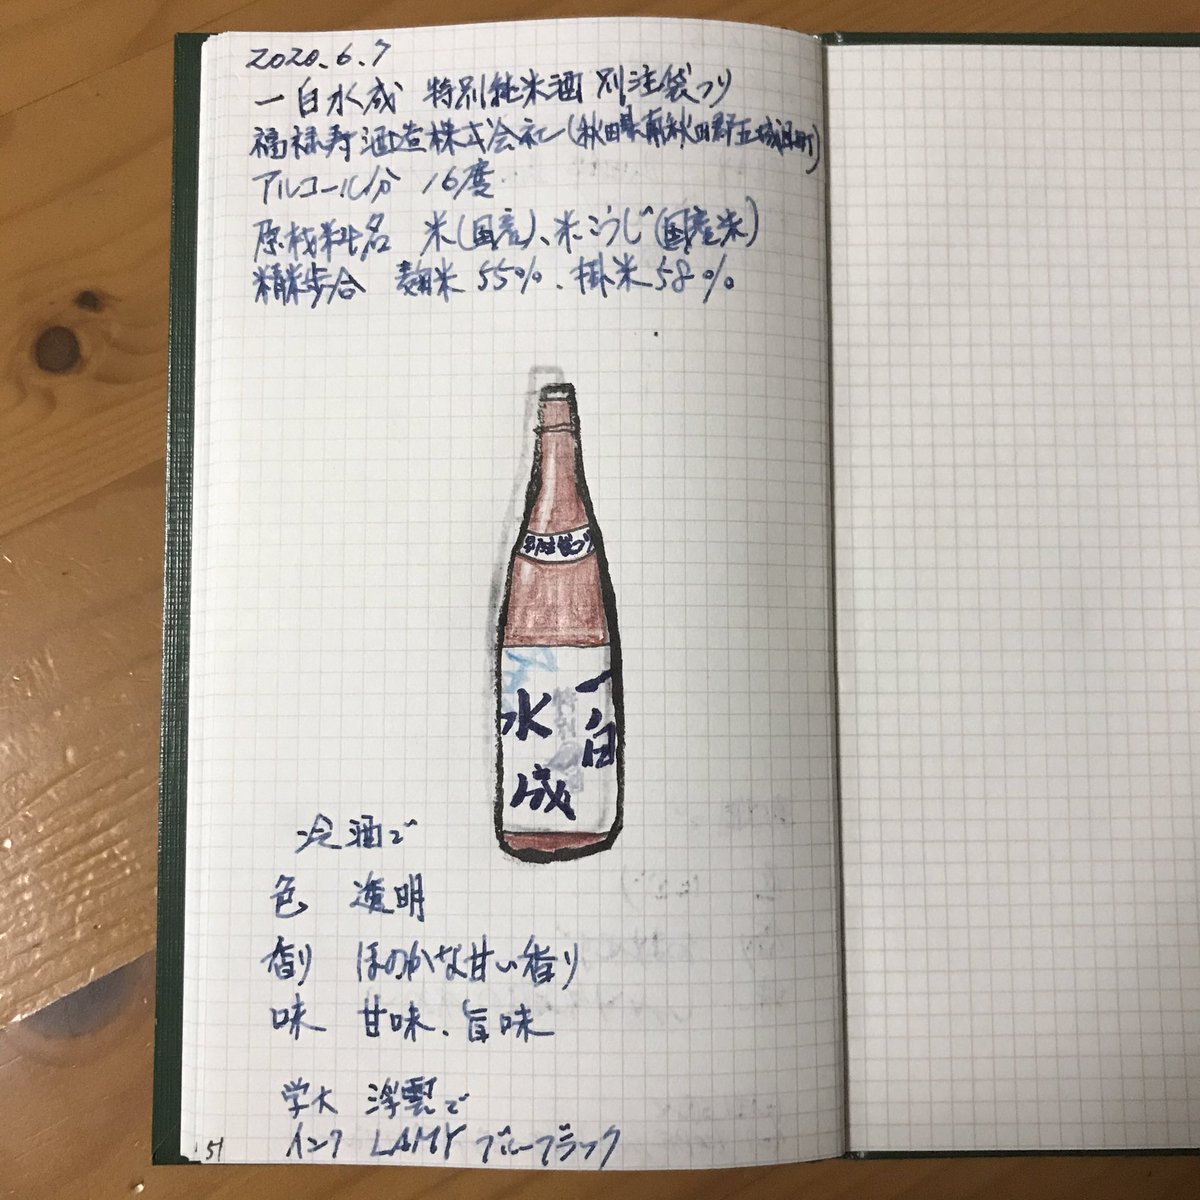 2020.6.7
一白水成 特別純米酒 別注袋つり
福禄寿酒造株式会社(秋田県南秋田郡五城目町)
アルコール分 16度
原材料名 米(国産)、米こうじ(国産米)
精米歩合 麹米55%、掛米58%
別注袋つり
一白
水成
冷酒で
色 透明
香り ほのかな甘い香り
味 甘味、旨味
学大 浮雲で
インク LAMY ブルーブラック
51